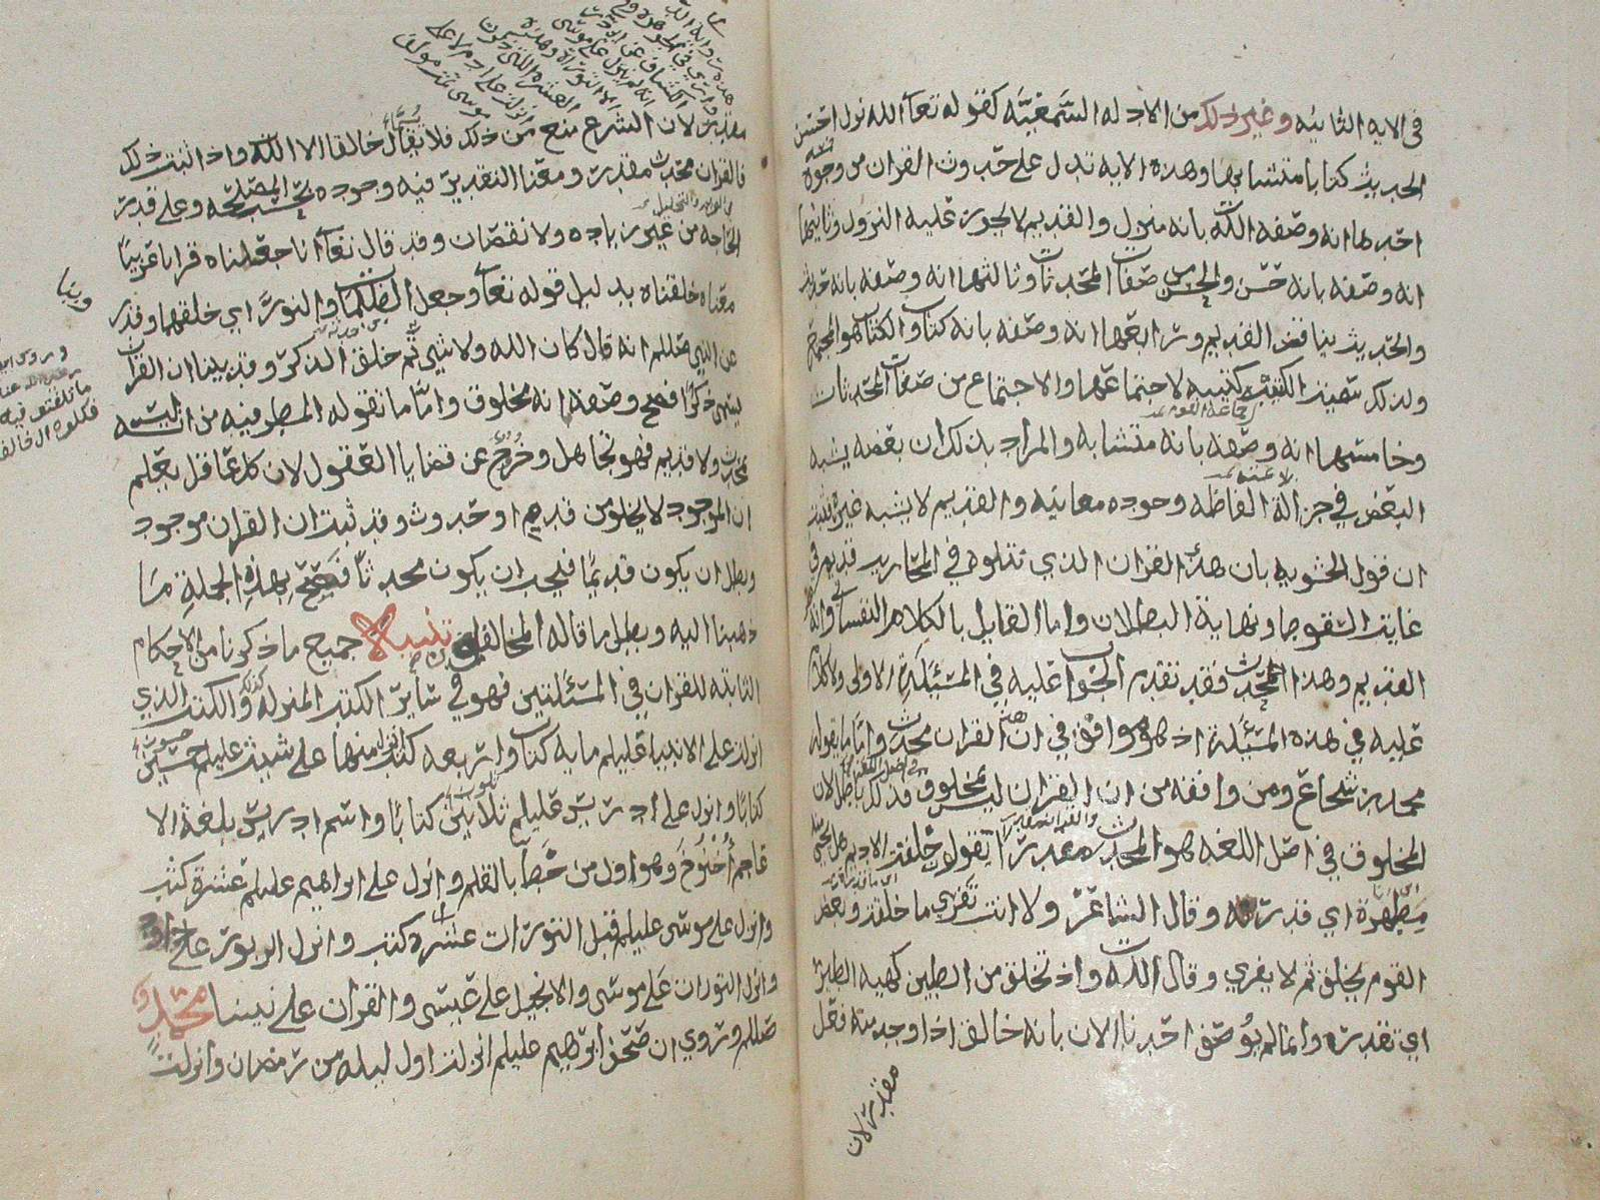 في الايه الثانيه وغير ذلك من الادله السمعيه كقوله تعالى الله نزل احسن
الحديث كتابا متشابها وهذه الايه تدل على حدوث القران من وجوه
احدها انه وصفه الله بانه منزل والقديم لا يجوز عليه النزول وثانيها
انه وصفه بانه حسن والحسن من صفات المحدثات وثالثها انه وصفه بانه حديث
والحديث يناقض القديم ورابعها انه وصفه بانه كتاب والكتاب هو المجتمع
ولذلك سميت الكتيبه كتيبه لاجتماعها والاجتماع من صفات المحدثات
وخامسها انه وصفه بانه متشابه والمراد بذلك ان بعضه يشبه
البعض في جزالة الفاظه وجوده معانيه والقديم لا يشبه غيره
ان قول الحشويه بان هذا القران الذي نتلوه في المحاريب قديم في
غاية السقوط ونهاية البطلان واما القايل بالكلام النفساني وانه
القديم وهذا المحدث فقد تقدم الجواب عليه في المسئلة الاولى ولا كلام
عليه في هذه المسئلة اذ هو موافق في ان هذا القران محدث واما ما يقوله
محمد بن شجاع ومن وافقه من ان القران ليس بمخلوق فذلك باطل لان
المخلوق في اصل اللغه هو المحدث مقدرا يقولون خلقت الاديم هل يجي منه
مطهرة اي قدرته وقال الشاعر ولانت تفري ما خلقت وبعض
القوم يخلق ثم لا يفري وقال الله واذ تخلق من الطين كهيه الطير
اي تقدره وانما لم يوصف احدنا الان بانه خالق اذا وجد منه فعل
مقدر لان
مقدر لان الشرع منع من ذلك فلا يقال خالقا الا الله واذا ثبت ذلك
فالقران محدث مقدر ومعنا التقدير فيه وجوده بحسب المصلحه وعلى قدر
الحاجه من غير زياده ولا نقصان وقد قال تعالى انا جعلناه قرانا عربيا
معناه خلقناه بدليل قوله تعالى وجعل الظلمات والنور اي خلقهما وقد
عن النبي صللم انه قال كان الله ولا شي ثم خلق الذكر وقد بينا ان القران
يسمى ذكرا فصح وصفه انه مخلوق واما ما تقوله المطرفيه من انه ليس
بمحدث ولا قديم فهو تجاهل وخروج عن قضايا العقول لان كل عاقل يعلم
ان الموجود لا يخلو من قدم او حدوث وقد ثبت ان القران موجود
وبطل ان يكون قديما فيجب ان يكون محدثا فصح بهذه الجملة ما
ذهبنا اليه وبطل ما قاله المخالفون تنبيه جميع ما ذكرنا من الاحكام
الثابته للقران في المسئلتين فهو في سائر الكتب المنزله والكتب الذي
انزلت على الانبيا عليلم مايه كتاب واربعه كتب منها على شيث عليلم خمسين
كتابا وانزل على ادريس عليلم ثلاثين كتابا واسم ادريس بلغة الا
عاجم أخنوخ وهو اول من خط بالقلم وانزل على ابراهيم عليلم عشرة كتب
وانزل على موسى عليلم قبل التورات عشرة كتب وانزل الزبور على داود
وانزل التورات على موسى والانجيل على عيسى والقران على نبينا محمد
صللم وروي ان صحف ابرهيم عليلم انزلت اول ليله من رمضان وانزلت